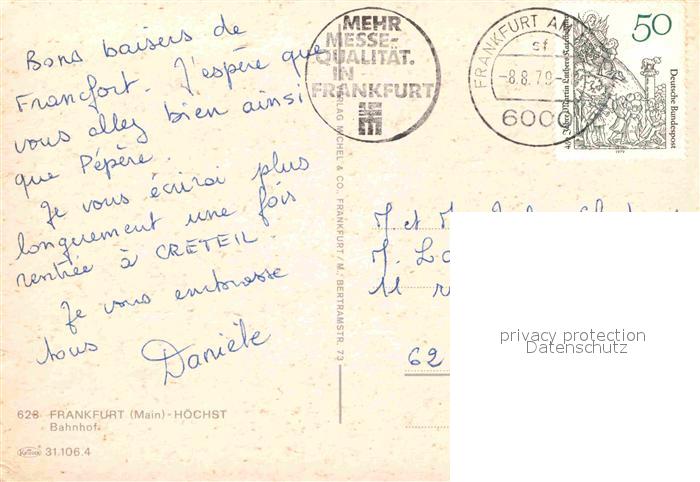 Bons baisers de
Francfort. J'espère que
vous allez bien ainsi
que Pépère.
Je vous écrirai plus
longuement une fois
rentrée à CRETEIL.
Je vous embrasse
tous
Danièle
628 FRANKFURT (Main) - HÖCHST
Bahnhof
Krüger 31.106.4
VERLAG MICHEL & CO., FRANKFURT/M., BERTRAMSTR. 73
MEHR
MESSE-
QUALITÄT.
IN
FRANKFURT
FRANKFURT AM
sf
-8.8.79
6000
50
Deutsche Bundespost
450 Jahre Martin Luthers Katechismus
1979
M et M
M.
11 r
62
privacy protection
Datenschutz